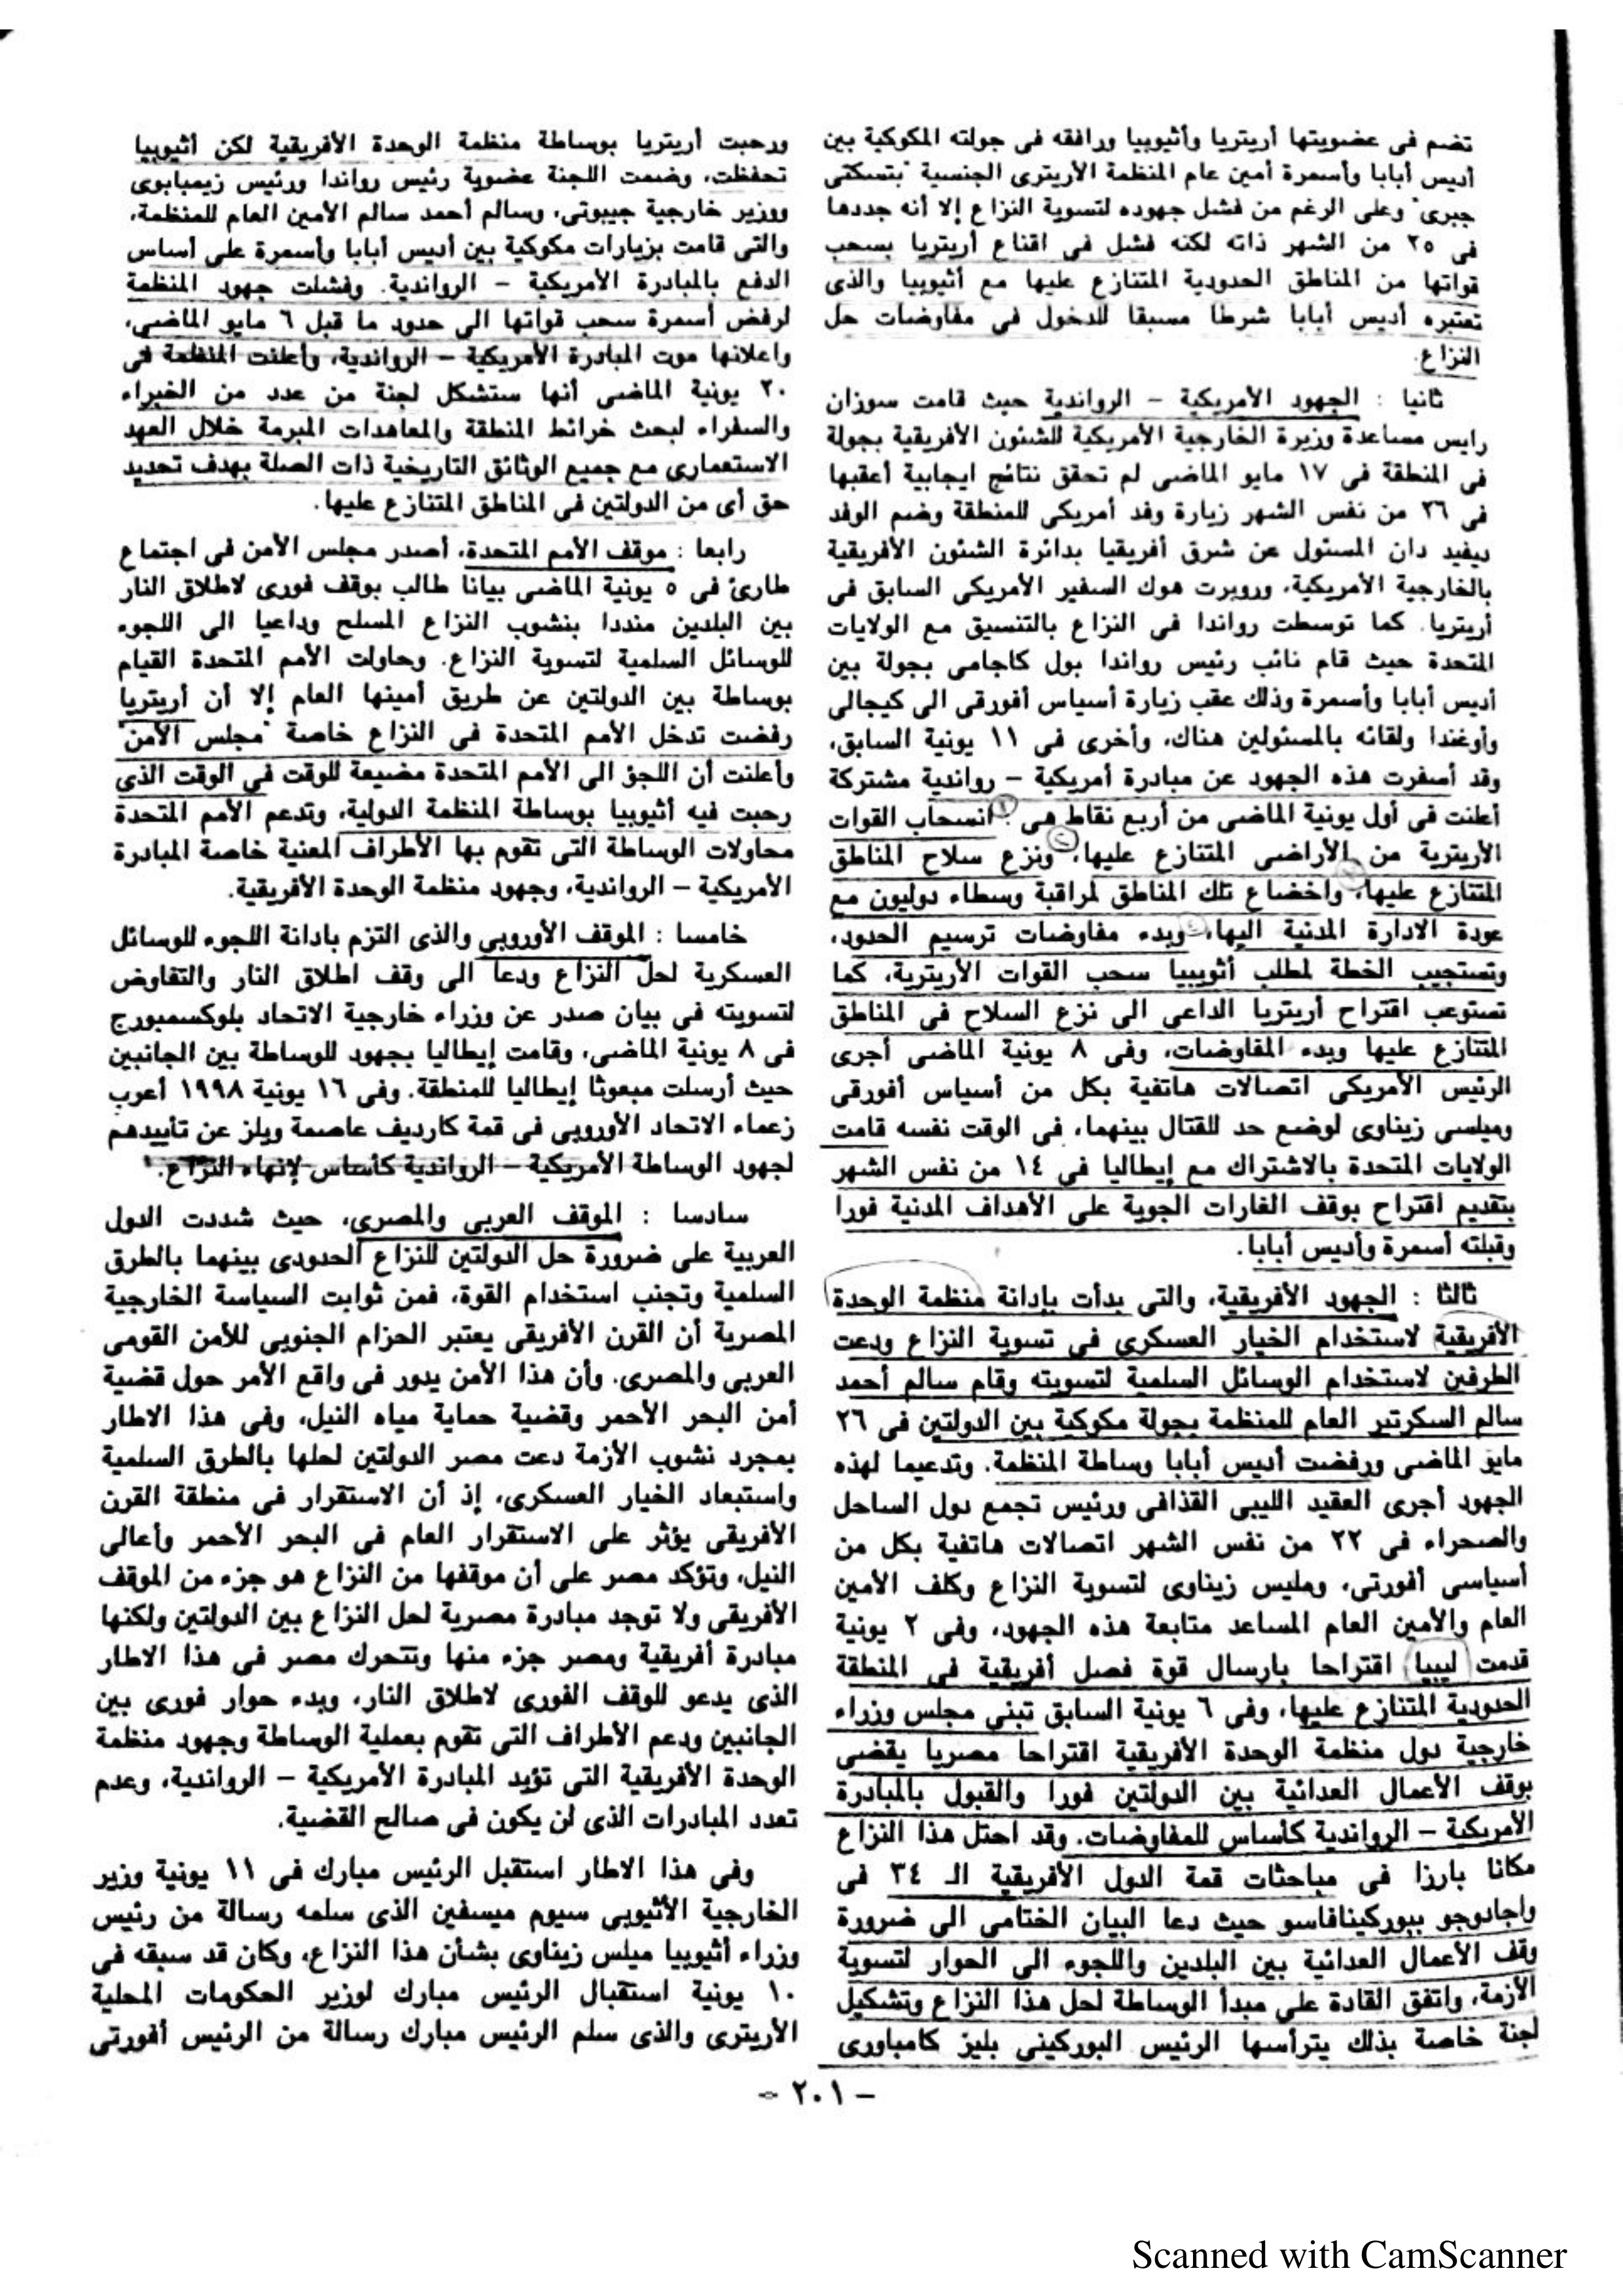 تضم فى عضويتها أريتريا وأثيوبيا ورافقه فى جولته المكوكية بين
أديس أبابا وأسمرة أمين عام المنظمة الأريترى الجنسية "بتسكتى
جبرى" وعلى الرغم من فشل جهوده لتسوية النزاع إلا أنه جددها
فى ٢٥ من الشهر ذاته لكنه فشل فى اقناع أريتريا بسحب
قواتها من المناطق الحدودية المتنازع عليها مع أثيوبيا والذى
تعتبره أديس أبابا شرطا مسبقا للدخول فى مفاوضات حل
النزاع.
ثانيا : الجهود الأمريكية – الرواندية حيث قامت سوزان
رايس مساعدة وزيرة الخارجية الأمريكية للشئون الأفريقية بجولة
فى المنطقة فى ١٧ مايو الماضى لم تحقق نتائج ايجابية أعقبها
فى ٢٦ من نفس الشهر زيارة وفد أمريكى للمنطقة وضم الوفد
ديفيد دان المسئول عن شرق أفريقيا بدائرة الشئون الأفريقية
بالخارجية الأمريكية، وروبرت هوك السفير الأمريكى السابق فى
أريتريا. كما توسطت رواندا فى النزاع بالتنسيق مع الولايات
المتحدة حيث قام نائب رئيس رواندا بول كاجامى بجولة بين
أديس أبابا وأسمرة وذلك عقب زيارة أسياس أفورقى الى كيجالى
وأوغندا ولقائه بالمسئولين هناك، وأخرى فى ١١ يونية السابق،
وقد أسفرت هذه الجهود عن مبادرة أمريكية – رواندية مشتركة
أعلنت فى أول يونية الماضى من أربع نقاط هى : انسحاب القوات
الأريترية من الأراضى المتنازع عليها، ونزع سلاح المناطق
المتنازع عليها، واخضاع تلك المناطق لمراقبة وسطاء دوليون مع
عودة الادارة المدنية اليها، وبدء مفاوضات ترسيم الحدود،
وتستجيب الخطة لمطلب أثيوبيا سحب القوات الأريترية، كما
تستوعب اقتراح أريتريا الداعى الى نزع السلاح فى المناطق
المتنازع عليها وبدء المفاوضات، وفى ٨ يونية الماضى أجرى
الرئيس الأمريكى اتصالات هاتفية بكل من أسياس أفورقى
وميلسى زيناوى لوضع حد للقتال بينهما، فى الوقت نفسه قامت
الولايات المتحدة بالاشتراك مع إيطاليا فى ١٤ من نفس الشهر
بتقديم اقتراح بوقف الغارات الجوية على الأهداف المدنية فورا
وقبلته أسمرة وأديس أبابا.
ثالثا : الجهود الأفريقية، والتى بدأت بإدانة منظمة الوحدة
الأفريقية لاستخدام الخيار العسكرى فى تسوية النزاع ودعت
الطرفين لاستخدام الوسائل السلمية لتسويته وقام سالم أحمد
سالم السكرتير العام للمنظمة بجولة مكوكية بين الدولتين فى ٢٦
مايو الماضى ورفضت أديس أبابا وساطة المنظمة. وتدعيما لهذه
الجهود أجرى العقيد الليبى القذافى ورئيس تجمع دول الساحل
والصحراء فى ٢٢ من نفس الشهر اتصالات هاتفية بكل من
أسياسى أفورتى، ومليس زيناوى لتسوية النزاع وكلف الأمين
العام والأمين العام المساعد متابعة هذه الجهود، وفى ٢ يونية
قدمت ليبيا اقتراحا بارسال قوة فصل أفريقية فى المنطقة
الحدودية المتنازع عليها، وفى ٦ يونية السابق تبنى مجلس وزراء
خارجية دول منظمة الوحدة الأفريقية اقتراحا مصريا يقضى
بوقف الأعمال العدائية بين الدولتين فورا والقبول بالمبادرة
الأمريكية – الرواندية كأساس للمفاوضات. وقد احتل هذا النزاع
مكانا بارزا فى مباحثات قمة الدول الأفريقية الـ ٣٤ فى
واجادوجو ببوركينافاسو حيث دعا البيان الختامى الى ضرورة
وقف الأعمال العدائية بين البلدين واللجوء الى الحوار لتسوية
الأزمة، واتفق القادة على مبدأ الوساطة لحل هذا النزاع وتشكيل
لجنة خاصة بذلك يترأسها الرئيس البوركينى بليز كامباورى
ورحبت أريتريا بوساطة منظمة الوحدة الأفريقية لكن أثيوبيا
تحفظت، وضمت اللجنة عضوية رئيس رواندا ورئيس زيمبابوى
ووزير خارجية جيبوتى، وسالم أحمد سالم الأمين العام للمنظمة،
والتى قامت بزيارات مكوكية بين أديس أبابا وأسمرة على أساس
الدفع بالمبادرة الأمريكية – الرواندية. وفشلت جهود المنظمة
لرفض أسمرة سحب قواتها الى حدود ما قبل ٦ مايو الماضى،
واعلانها موت المبادرة الأمريكية – الرواندية، وأعلنت المنظمة فى
٢٠ يونية الماضى أنها ستشكل لجنة من عدد من الخبراء
والسفراء لبحث خرائط المنطقة والمعاهدات المبرمة خلال العهد
الاستعمارى مع جميع الوثائق التاريخية ذات الصلة بهدف تحديد
حق أى من الدولتين فى المناطق المتنازع عليها.
رابعا : موقف الأمم المتحدة، أصدر مجلس الأمن فى اجتماع
طارئ فى ٥ يونية الماضى بيانا طالب بوقف فورى لاطلاق النار
بين البلدين منددا بنشوب النزاع المسلح وداعيا الى اللجوء
للوسائل السلمية لتسوية النزاع. وحاولت الأمم المتحدة القيام
بوساطة بين الدولتين عن طريق أمينها العام إلا أن أريتريا
رفضت تدخل الأمم المتحدة فى النزاع خاصة "مجلس الأمن"
وأعلنت أن اللجؤ الى الأمم المتحدة مضيعة للوقت فى الوقت الذى
رحبت فيه أثيوبيا بوساطة المنظمة الدولية، وتدعم الأمم المتحدة
محاولات الوساطة التى تقوم بها الأطراف المعنية خاصة المبادرة
الأمريكية – الرواندية، وجهود منظمة الوحدة الأفريقية.
خامسا : الموقف الأوروبى والذى التزم بادانة اللجوء للوسائل
العسكرية لحل النزاع ودعا الى وقف اطلاق النار والتفاوض
لتسويته فى بيان صدر عن وزراء خارجية الاتحاد بلوكسمبورج
فى ٨ يونية الماضى، وقامت إيطاليا بجهود للوساطة بين الجانبين
حيث أرسلت مبعوثا إيطاليا للمنطقة. وفى ١٦ يونية ١٩٩٨ أعرب
زعماء الاتحاد الأوروبى فى قمة كارديف عاصمة ويلز عن تأييدهم
لجهود الوساطة الأمريكية – الرواندية كأساس لإنهاء النزاع.
سادسا : الموقف العربى والمصرى، حيث شددت الدول
العربية على ضرورة حل الدولتين للنزاع الحدودى بينهما بالطرق
السلمية وتجنب استخدام القوة، فمن ثوابت السياسة الخارجية
المصرية أن القرن الأفريقى يعتبر الحزام الجنوبى للأمن القومى
العربى والمصرى. وأن هذا الأمن يدور فى واقع الأمر حول قضية
أمن البحر الأحمر وقضية حماية مياه النيل، وفى هذا الاطار
بمجرد نشوب الأزمة دعت مصر الدولتين لحلها بالطرق السلمية
واستبعاد الخيار العسكرى، إذ أن الاستقرار فى منطقة القرن
الأفريقى يؤثر على الاستقرار العام فى البحر الأحمر وأعالى
النيل، وتؤكد مصر على أن موقفها من النزاع هو جزء من الموقف
الأفريقى ولا توجد مبادرة مصرية لحل النزاع بين الدولتين ولكنها
مبادرة أفريقية ومصر جزء منها وتتحرك مصر فى هذا الاطار
الذى يدعو للوقف الفورى لاطلاق النار، وبدء حوار فورى بين
الجانبين ودعم الأطراف التى تقوم بعملية الوساطة وجهود منظمة
الوحدة الأفريقية التى تؤيد المبادرة الأمريكية – الرواندية، وعدم
تعدد المبادرات الذى لن يكون فى صالح القضية.
وفى هذا الاطار استقبل الرئيس مبارك فى ١١ يونية وزير
الخارجية الأثيوبى سيوم ميسفين الذى سلمه رسالة من رئيس
وزراء أثيوبيا ميلس زيناوى بشأن هذا النزاع، وكان قد سبقه فى
١٠ يونية استقبال الرئيس مبارك لوزير الحكومات المحلية
الأريترى والذى سلم الرئيس مبارك رسالة من الرئيس أفورتى
– ٢٠١ –
Scanned with CamScanner